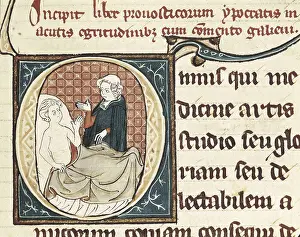 Incipit liber pronosticorum ypocratis in
acutis egritudinibꝫ cum comento galieni.
Omnis qui me
dicine artis
studio seu glo
riam seu de
lectabilem a